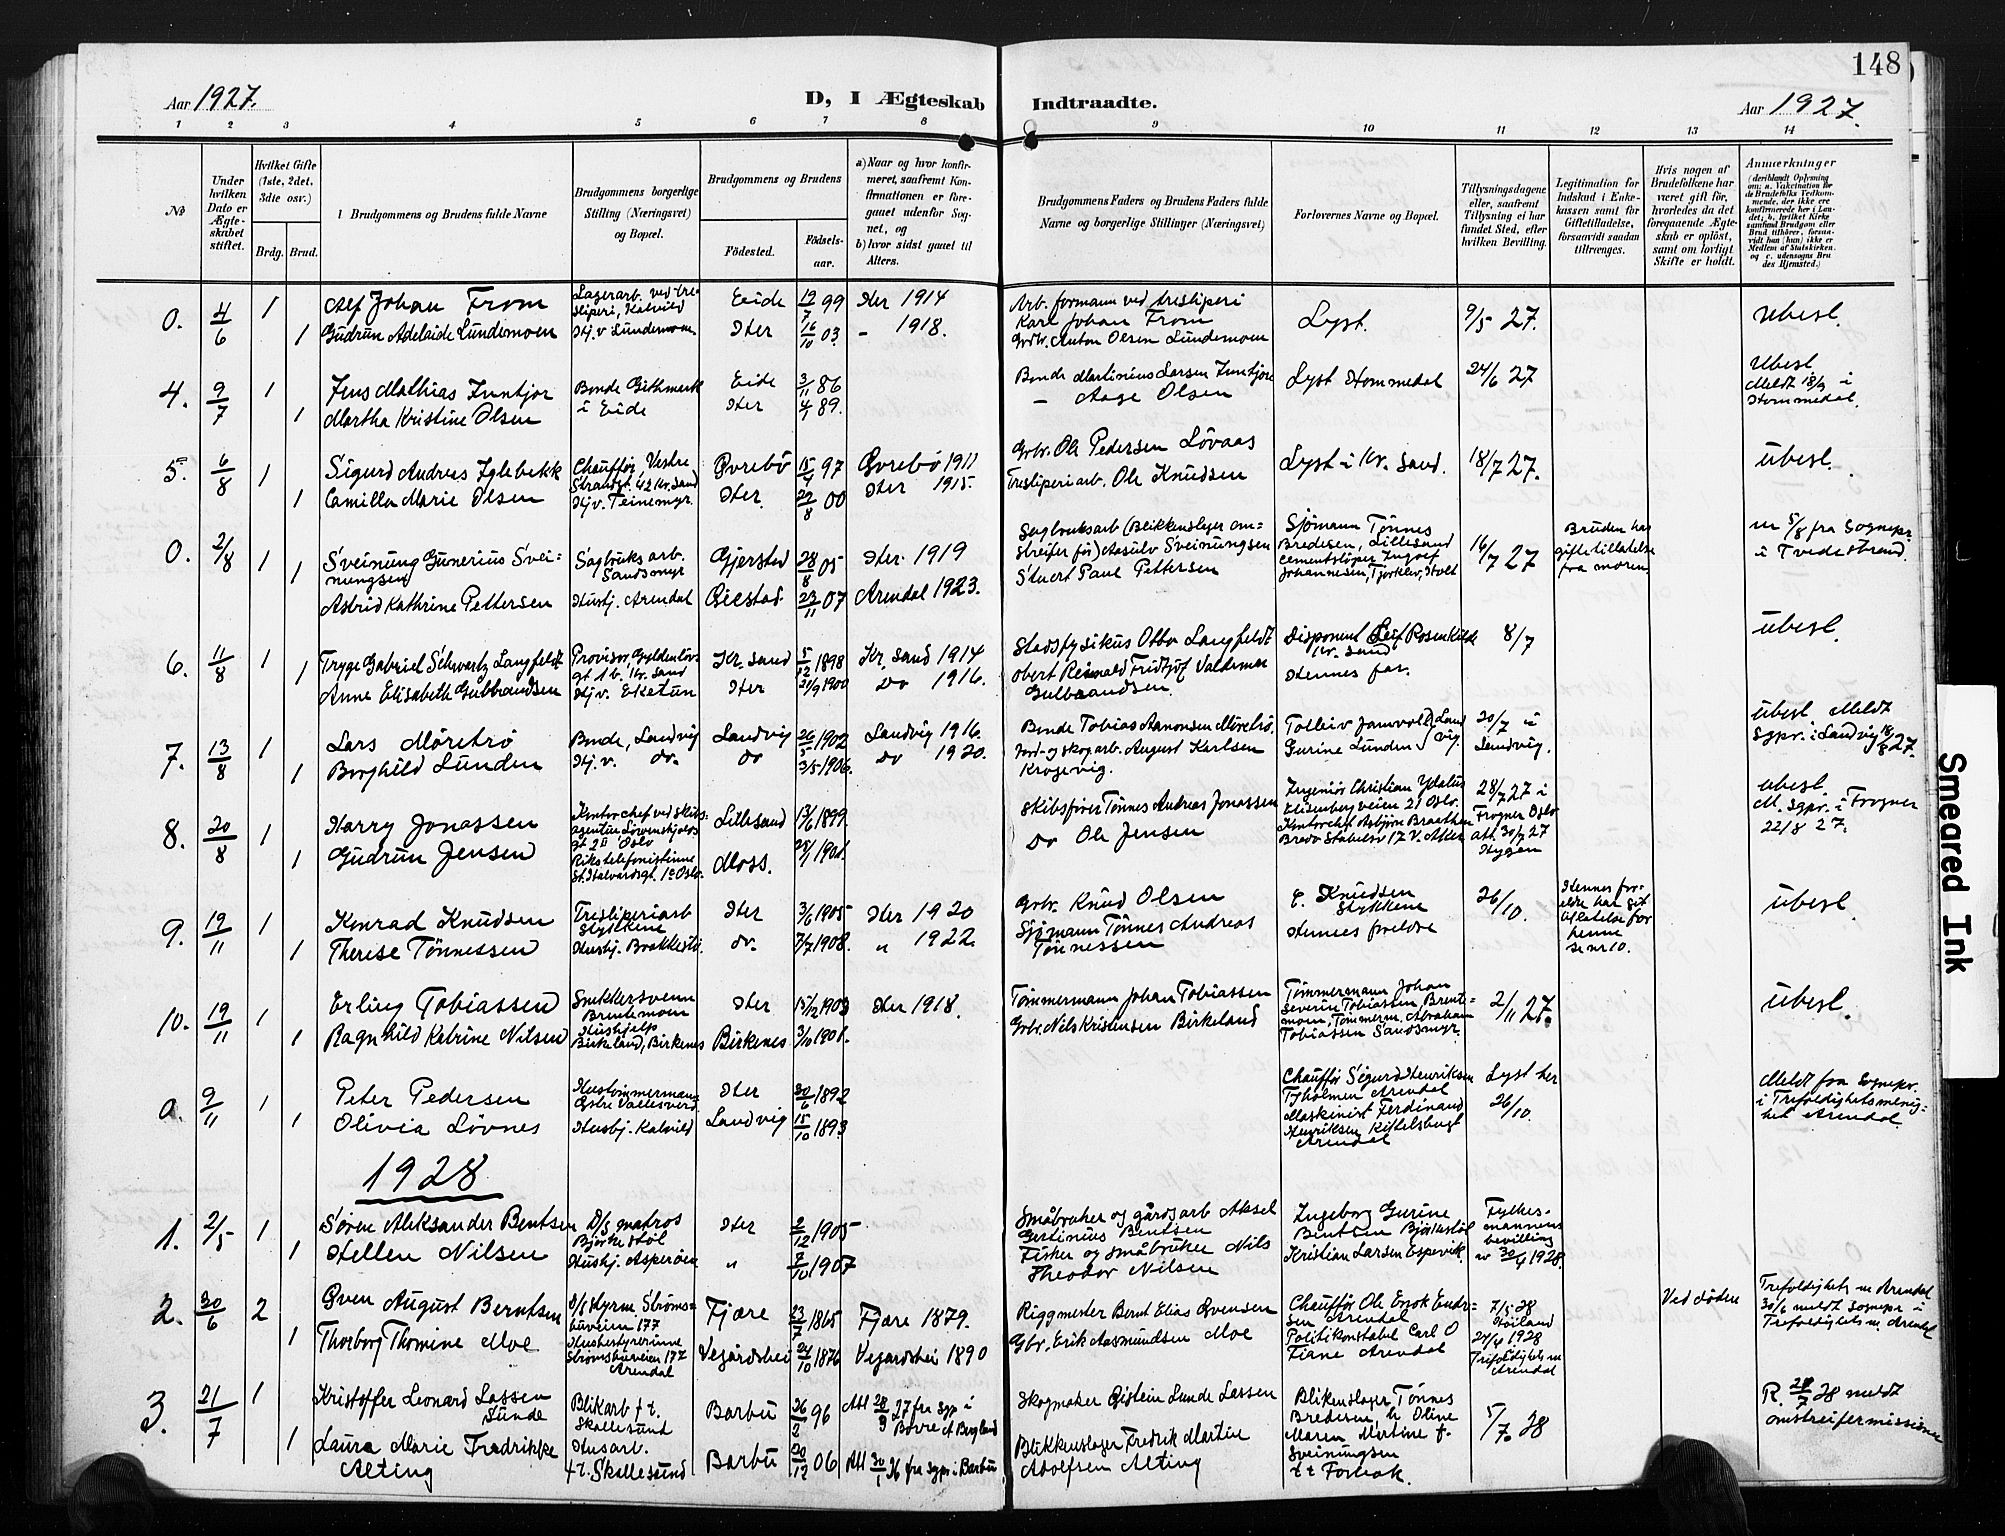 148
Aar 1927.
D, I Ægteskab Indtraadte.
Aar 1927.
1 2 3 4 5 6 7 8 9 10 11 12 13 14
№
Under hvilken Dato er Ægteskabet stiftet.
Hvilket Gifte (1ste, 2det, 3dte osv.)
Brdg. Brud.
Brudgommens og Brudens fulde Navne
Brudgommens borgerlige Stilling (Næringsvei) og Bopæl.
Brudgommens og Brudens
Födested.
Födselsaar.
a) Naar og hvor konfirmeret, saafremt Konfirmationen er foregaaet udenfor Sognet, og
b) hvor sidst gaaet til Alters.
Brudgommens Faders og Brudens Faders fulde Navne og borgerlige Stillinger (Næringsvei)
Forlovernes Navne og Bopæl.
Tillysningsdagene eller, saafremt Tillysning ei har fundet Sted, efter hvilken Bevilling.
Legitimation for Indskud i Enkekassen samt for Giftetilladelse, forsaavidt saadan tiltrænges.
Hvis nogen af Brudefolkene har været gift før, hvorledes da det foregaaende Ægteskab er oplöst, samt om lovligt Skifte er holdt.
Anmærkninger
(deriblandt Oplysning om: a. Vakcination for de Brudefolks Vedkommende, der ikke ere konfirmerede her i Landet; b. hvilket Kirkesamfund Brudgom eller Brud tilhörer, forsaavidt han (hun) ikke er Medlem af Statskirken, og c. udensogns Brudes Hjemsted.)
0. 4/6 1 Alf Johan From Lagerarb. ved tresliperi, Kalvild Eide 19/7 99 Her 1914
1 Gudrun Adelaide Lundemoen Hj. v. Lundemoen Her 16/10 03 - 1918.
Arb. formann ved tresliperi Karl Johan From
Grbr. Anton Olsen Lundemoen
Lyst. 9/5 27. Ubesl.
4. 9/7 1 Jens Mathias Inntjor Bonde i Eide Eide 3/11 86
1 Martha Kristine Olsen Her 4/1 89.
Bonde Martinius Larsen Inntjore
- Aage Olsen
Lyst Hommedal 24/6 27
Ubesl Meldt 18/9 i Hommedal.
5. 6/8 1 Sigurd Andreas Iglebekk Chauffør, Vestre Strandgt. 42 Kr. Sand Øvrebö 15/4 97 Øvrebö 1911
1 Camilla Marie Olsen Hj. v. Teinemyr. Her. 22/8 00 Her 1915.
Grbr. Ole Pedersen Lövaas
Tresliperiarb. Ole Knudsen
Lyst i Kr. Sand. 18/7 27. Ubesl.
0. 2/8 1 Sveinung Gunerius Sveinungsen Sagbruksarb. Sandsmyr Gjerstad 28/8 05 Her 1919
1 Astrid Kathrine Pettersen Hushj. Arendal Øiestad 23/11 07 Arendal 1923.
Sagbruksarb (Blikkenslager omstreifer før) Aasulv Sveinungsen
Stuert Paul Pettersen
Sjömann Tönnes Bredesen, Lillesand
Cementstøper Ingolf Johannesen, Holt
16/7 27
Bruden har giftetillatelse fra moren.
m 5/8 fra Sognepr. i Tvedestrand.
6. 11/8 1 Tryge Gabriel Schwartz Langfeldt Provisor, Gyldenløvsgt 1 b. Kr. Sand Kr. Sand 5/12 1898 Kr. Sand 1914
1 Anne Elisabeth Gulbrandsen Hj. v. Eketun Her 21/9 1900 Do 1916.
Stadsfysikus Otto Langfeldt
Oberst Reinald Fridtjof Valdemar Gulbrandsen.
Disponent Leif Rosenkilde Kr. Sand
Hennes far.
8/7 Ubesl.
7. 13/8 1 Lars Möretrö Bonde, Landvig Landvig 26/5 1902 Landvig 1916.
1 Borghild Lunden Hj. v. do. do 3/5 1906. Do 1920.
Bonde Tobias Aanonsen Möretrö
Jord- og skogarb. August Karlsen Krogevig.
Tolleiv Jamvold, Gurine Lunden } Landvig.
20/7 i Landvig.
Ubesl Meldt Sgpr. i Landvig 16/8 27.
8. 20/8 1 Harry Jonassen Kontorchef ved skibsagentur Løvenskjolds gt 2 II Oslo Lillesand 13/6 1899
1 Gudrun Jensen Rikstelefonistinne St. Halvardsgt. 1c Oslo. Moss. 28/1 1901.
Skibsfører Tönnes Andreas Jonassen
Do Ole Jensen
Ingeniör Christian Eilenberg veien 21 Oslo.
Kontorchef Asbjørn Braathen Bredo Stabelsv 17 V. Aker
28/7 27 i Frogner Oslo att. 30/7 27 Hygen
Ubesl. M. Sgpr. i Frogner 22/8 27.
9. 19/11 1 Konrad Knudsen Tresliperiarb Stykkene Her 3/6 1905 Her 1920
1 Therese Tönnessen Hushj. Brekkestö do. 7/7 1908. " 1922.
Grbr. Knud Olsen
Sjömann Tönnes Andreas Tönnessen
E. Knudsen Stykkene
Hennes foreldre
26/10.
Hennes foreldre har git tillatelse for henne se nr 10.
Ubesl.
10. 19/11 1 Erling Tobiassen Snekkersvenn Brentemoen Her 15/12 1903 Her 1918.
1 Ragnhild Katrine Nilsen Hushjelp Birkeland, Birkenes Birkenes 3/10 1901.
Tömmermann Johan Tobiassen
Grbr Nils Kristensen Birkeland
Tömmermann Johan Severin Tobiassen Brentemoen, Tömmerm. Abraham Tobiassen Sandsmyr.
2/11 27. Ubesl.
0. 9/11 1 Peter Pedersen Hustömmermann Østre Vallesverd Her 30/6 1892
1 Olivia Lövnes Hushj. Kalvild Landvig 15/10 1893
Chauffør Sigurd Henriksen Tyholmen Arendal
Maskinist Ferdinand Henriksen Kittelsbugt Arendal
Lyst her 26/10.
Meldt fra Sognepr. i Trefoldighetsmenighet Arendal.
1928
1. 2/5 1 Sören Aleksander Bentsen D/S matros Bjørkestøl Her 2/12 1905
1 Hellen Nilsen Hushj. Asperöen " 7/10 1907
Småbruker og gårdsarb Aksel Gustinius Bentsen
Fisker og småbruker Nils Theodor Nilsen
Ingeborg Gurine Bentsen Bjørkestøl
Kristian Larsen Espevik.
Fylkesmannens bevilling av 30/4 1928.
2. 30/6 2 Sven August Berntsen Strømsbuveien 177 Fjære 23/7 1865 Fjære 1879.
1 Thorborg Thomine Moe Husbestyrerinne Strømsbuveien 177 Arendal Vegårdshei 24/10 1876 Vegårdshei 1890
Riggmester Bernt Elias Svensen
Gbr. Erik Aasmundsen Moe
Chauffør Ole Arendal
Politikonstabel Carl O Fiane Arendal
7/5 28 Høiland 24/4 1928 Trefoldighets m Arendal
Ved döden
Trefoldighets m Arendal 30/6 meldt Sognepr i Trefoldighets m. Arendal
3. 21/7 1 Kristoffer Leonard Lassen Lunde Blikarb f. t. Skallesund Barbu 26/2 96 Att 28/9 27 fra sgp i
1 Laura Marie Fredrikke Alting Husarb. f. t. Skallesund Barbu 30/12 06 Att 30/1 26 fra sgpr i Barbu
Skogmaker Öistein Lunde Lassen
Blikkenslager Fredrik Martin Adolfsen Alting
Blikenslager Tönnes Bredesen, h. Oline Maren Martine f. Sveinungsen
5/7. 28
R. 28/7 28 meldt omstreifermissionen
Smeared Ink